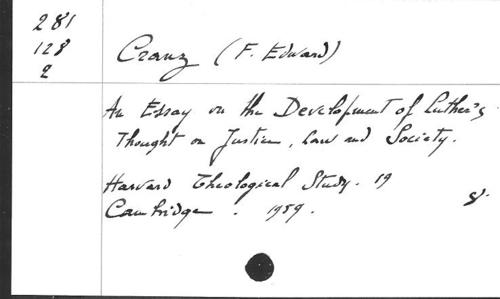 281
128
2
Cranz (F. Edward)
An Essay on the Development of Luther's
Thought on Justice, Law and Society.
Harvard Theological Study. 19
8°
Cambridge. 1959.